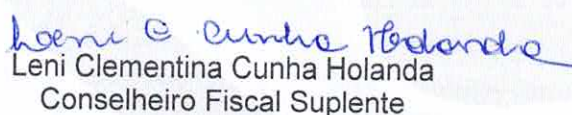 Leni C Cunha Holanda
Leni Clementina Cunha Holanda
Conselheiro Fiscal Suplente